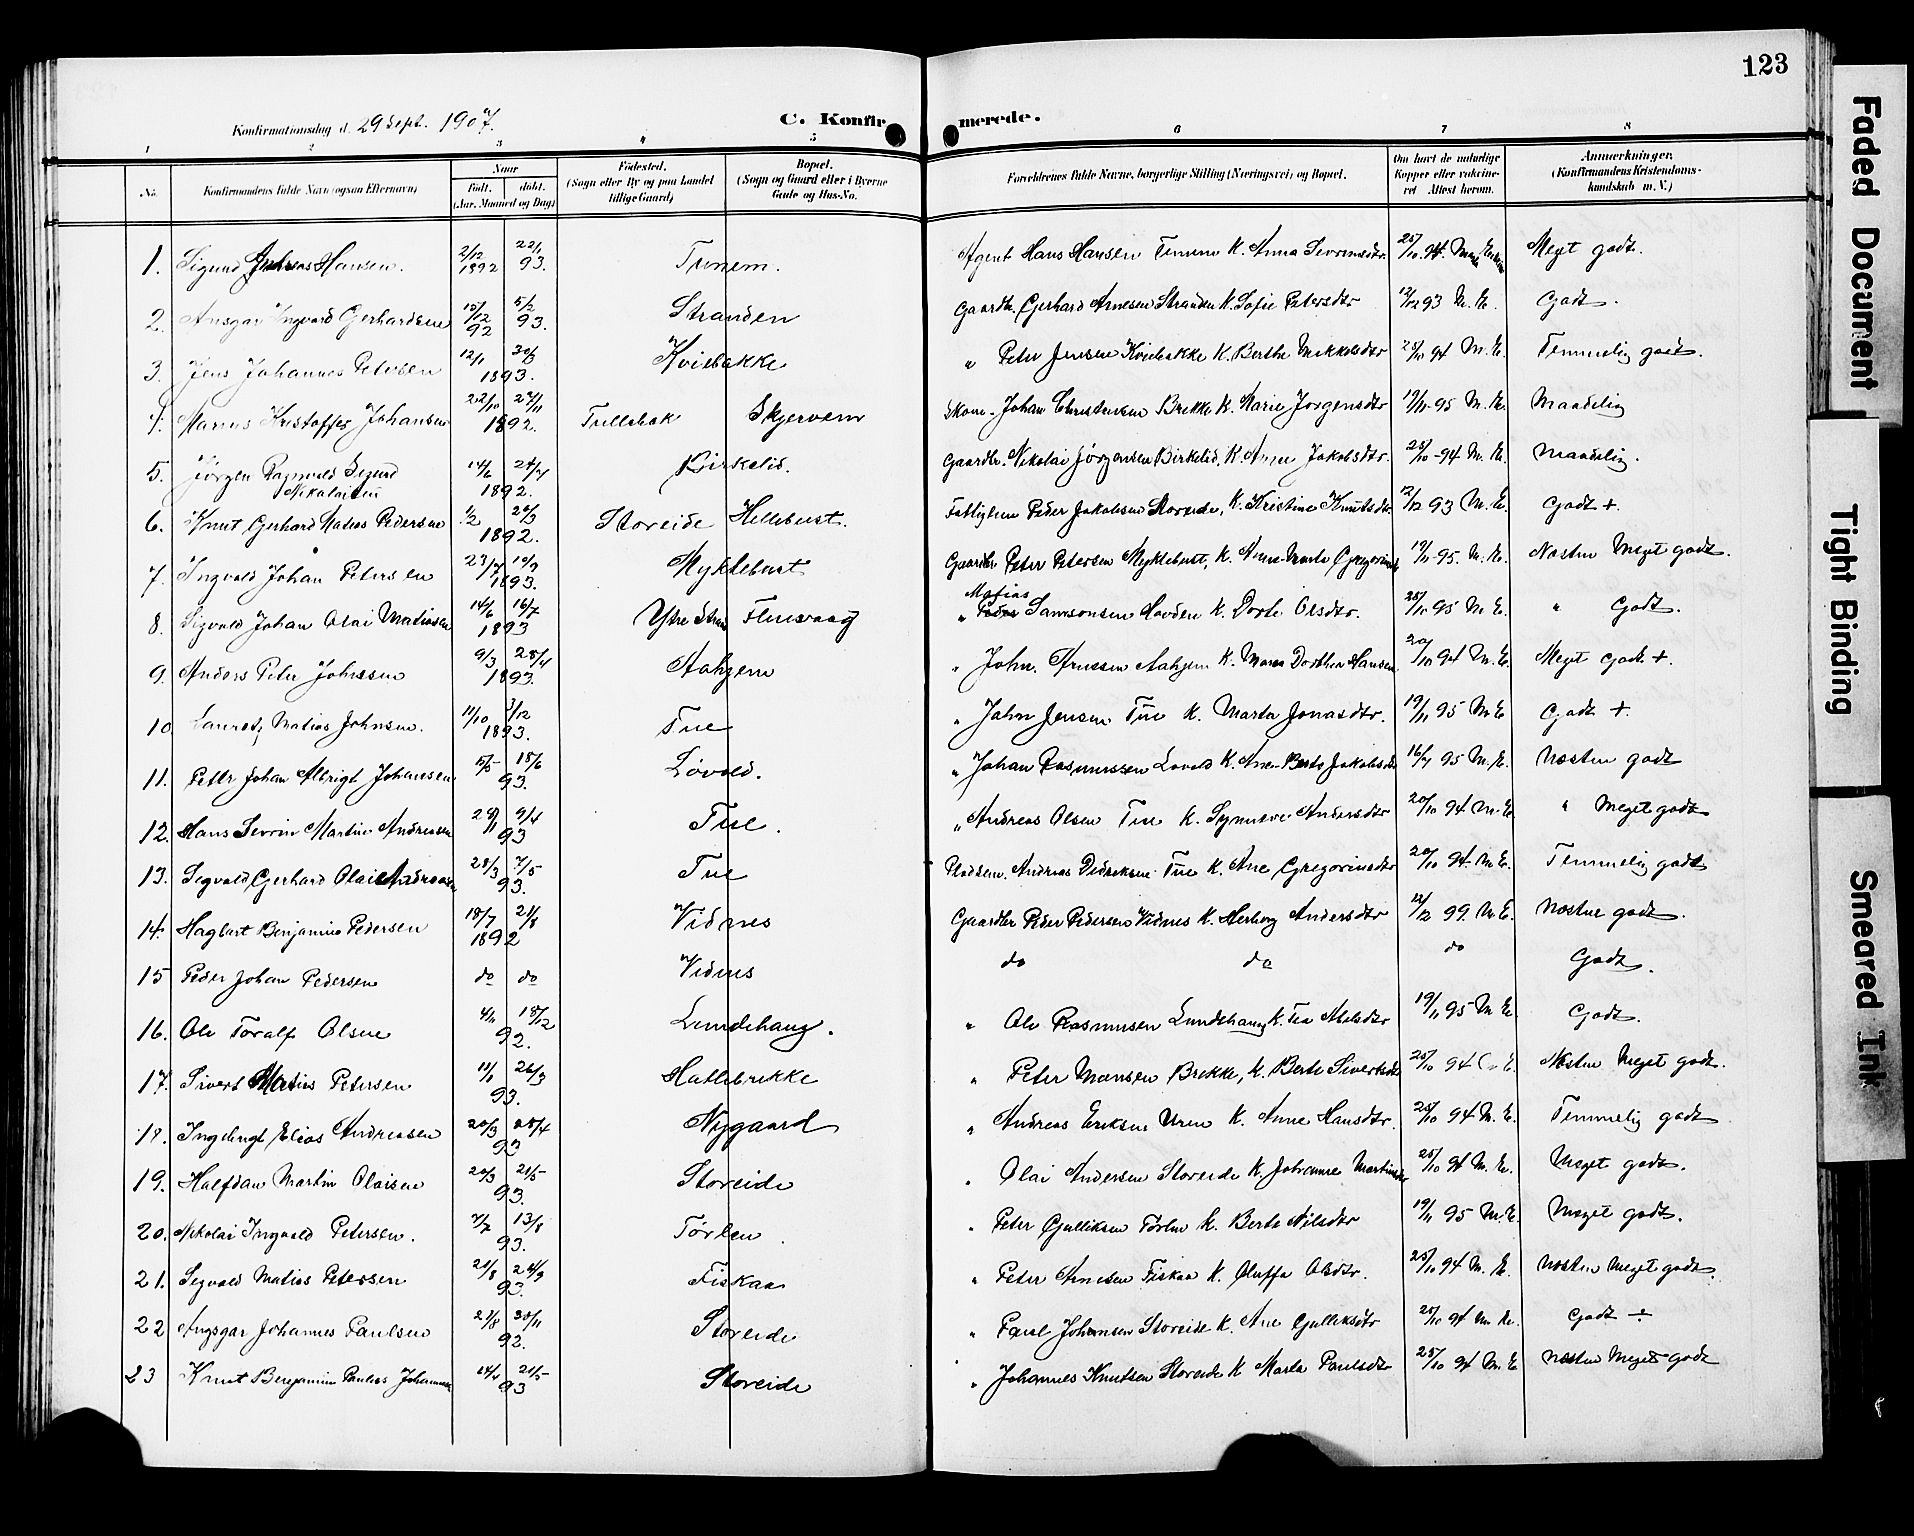 123
Konfirmationsdag d. 29 Sept. 1907.
C. Konfirmerede.
1 2 3 4 5 6 7 8
No.
Konfirmandens fulde Navn (ogsaa Efternavn)
Naar
født. døbt.
(Aar, Maaned og Dag)
Fødested.
(Sogn eller By og paa Landet
tillige Gaard)
Bopæl.
(Sogn og Gaard eller i Byerne
Gade og Hus-No.
Forældrenes fulde Navne, borgerlige Stilling (Næringsvei) og Bopæl.
Om havt de naturlige
Kopper eller vakcine-
ret Attest herom.
Anmerkninger
(Konfirmandens Kristendoms-
kundskab m. V.)
1. Sigurd Hansen. 2/12 1892 22/1 93. Agent Hans Hansen K. Anna Sevrinsdtr 25/10 94. Meget godt.
2. Ansgar Ingvard Gerhardsen 15/12 92 5/2 93. Stranden Gaardbr. Gerhard Arnesen Stranden K. Sofie Petersdtr 12/12 93 M. E. Godt.
3. Jens Johannes Petersen 12/1 1893. Kvisbakke " Peter Jensen Kvisbakke K. Berthe Mikkelsdtr 94 M. E. Temmelig godt.
4. Marius Kristoffer Johansen 22/10 27/11 1892. Johan Christensen Brekke K. Marie Jørgensdtr 19/11 95 M. E. Maadelig
5. Jørgen Ragnvald Sigurd Nikolaisen 14/6 24/7 1892. Birkelid. Gaardbr. Nikolai Jørgensen Birkelid, K. Anne Jakobsdtr. 25/10 94 M. E. Maadelig.
6. Knut Gerhard Matias Pedersen 1/2 20/3 1892. Storeide Hellebust. Peder Jakobsen Storeide, K. Kristine Knutsdtr 12/12 93 M. E. Godt +
7. Ingvald Johan Petersen 23/7 1893. Myklebust Gaardbr Peter Petersen Myklebust, K. Anne Marte 19/11 95. M. E. Næsten Meget godt.
8. Sigvald Johan Olai Matiasen 14/6 16/7 1893 Ytre Flusvaag " Matias Samsonsen K. Dorte Olsdtr. 25/11 95 M. E. " Godt.
9. Anders Peter Johnsen 9/3 23/4 1893. Aahjem " John. Arnesen Aahjem K. Dorthea Hansen 20/10 94 M. E. Meget Godt +.
10 Laurits Matias Johnsen. 11/10 3/12 1893. Tue " John Jensen Tue K. Marta Jonasdtr. 19/11 95 M. E Godt +.
11. Peter Johan Albrigt Johansen 5/5 18/6 93. Løvold. " Johan Rasmussen Løvold K. Ane Berte Jakobsdtr 95 M. E. Næsten godt
12. Hans Sevrin Martin Andreasen 9/4 93 Tue. " Andreas Olsen Tue K. Synneve Andersdtr 20/10 94 M. E. " Meget godt
13. Sigvald Gerhard Olai Andreasen 28/3 7/5 93. Tue Pladsem. Andreas Didriksen Tue K. Ane Gregoriusdtr 20/10 94. M. E. Temmelig godt
14. Hagbart Benjamin Pedersen 18/7 21/8 1892 Vidnes Gaardbr Peder Pedersen Vidnes K. Herborg Andersdtr 12/12 99. M. E. Næsten godt.
15 Peder Johan Pedersen do do Vidnes do do do Godt.
16. Ole Toralf Olsen 4/11 18/12 92. Lundehaug. " Ole Rasmusen Lundehaug K. Abelsdtr 19/11 95 M. E Godt.
17. Sivert Matias Petersen 11/1 26/3 93. Hallebrekke " Peter Monsen Brekke, K. Berte Sivertsdtr 25/10 94 Næsten Meget godt.
18. Ingebrigt Elias Andreasen 20/3 23/4 93 Nygaard " Andreas Eriksen Uren K. Anne Hansdtr. 25/10 94 M. E. Temmelig godt
19. Halfdan Martin Olaisen 20/3 21/5 93. Storeide " Olai Andersen Storeide K. Johanne 25/10 94 M. E. Meget godt.
20. Nikolai Ingvald Petersen. 7/7 13/8 93. Tørlen " Peter Gulliksen Tørlen K. Berte Nilsdtr 19/11 95 M. E. Meget godt.
21. Sigvald Matias Petersen 21/8 24/9 93. Fiskaa " Peter Arnesen Fiskaa K. Oluffa Olsdtr. 25/10 94 M. E. Næsten Meget godt.
22 Angsgar Johannes Paulsen 21/8 30/11 92. Storeide " Paul Johansen Storeide K. Ane Gulliksdtr 25/10 94 M. E. Godt ÷
23 Knut Benjamin Paulus Johannesen 21/5 93 Storeide " Johannes Knutsen Storeide K Marta Paulsdtr 25/10 94 M. E Næsten Meget godt
Faded Document
Tight Binding
Smeared Ink